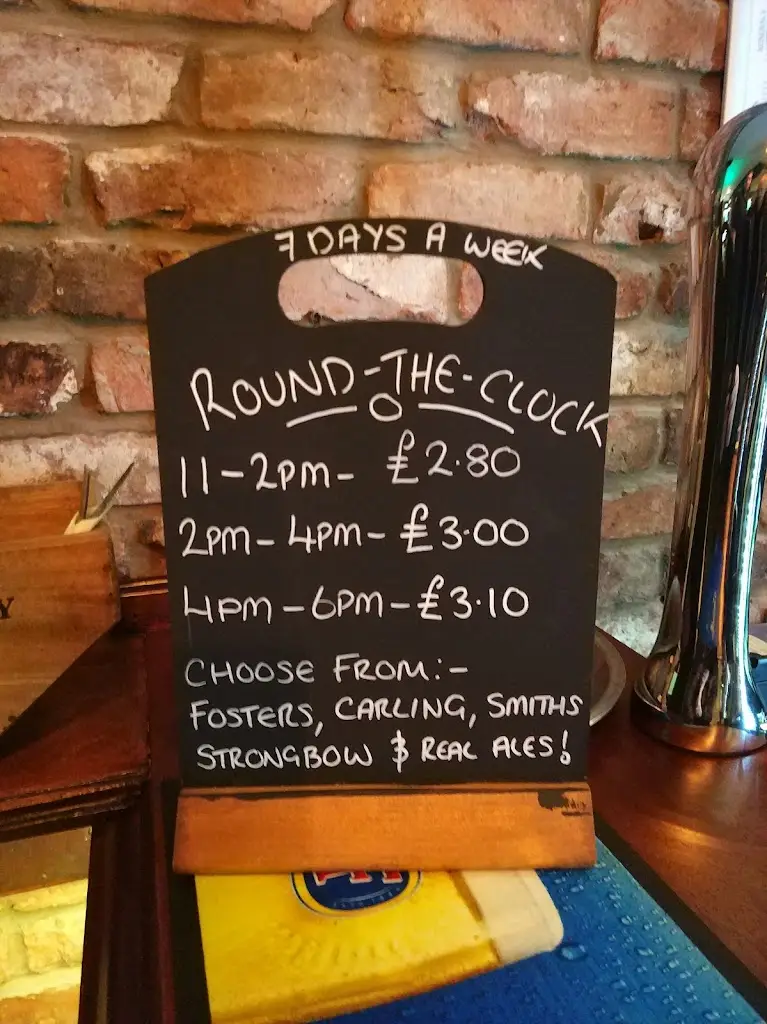 7 DAYS A WEEK
ROUND-THE-CLOCK
11-2PM- £2.80
2PM- 4PM- £3.00
4PM-6PM-£3.10
CHOOSE FROM:-
FOSTERS, CARLING, SMITHS
STRONGBOW & REAL ALES!
Y